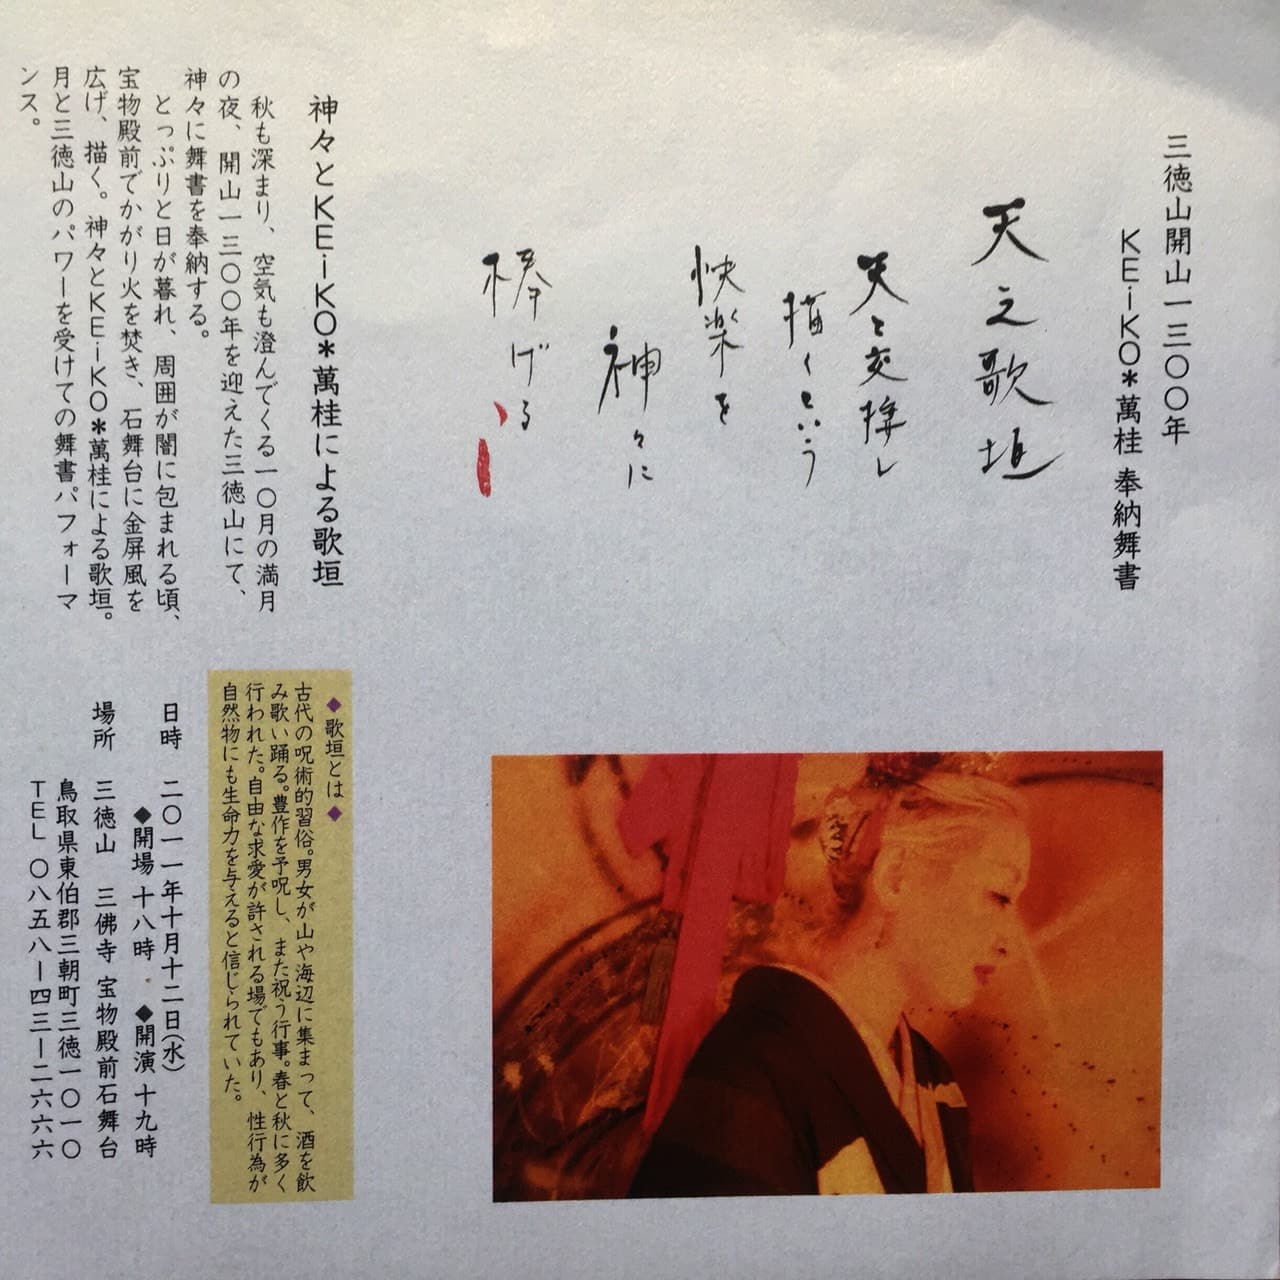 三徳山開山一三〇〇年
KEiKO＊萬桂 奉納舞書
天之歌垣
天と交接し
描くという
快楽を
神々に
捧げる
神々とKEiKO＊萬桂による歌垣
秋も深まり、空気も澄んでくる一〇月の満月
の夜、開山一三〇〇年を迎えた三徳山にて、
神々に舞書を奉納する。
とっぷりと日が暮れ、周囲が闇に包まれる頃、
宝物殿前でかがり火を焚き、石舞台に金屏風を
広げ、描く。神々とKEiKO＊萬桂による歌垣。
月と三徳山のパワーを受けての舞書パフォーマ
ンス。
◆歌垣とは◆
古代の呪術的習俗。男女が山や海辺に集まって、酒を飲
み歌い踊る。豊作を予呪し、また祝う行事。春と秋に多く
行われた。自由な求愛が許される場でもあり、性行為が
自然物にも生命力を与えると信じられていた。
日時 二〇一一年十月十二日(水)
◆開場 十八時 ◆開演 十九時
場所 三徳山 三佛寺 宝物殿前石舞台
鳥取県東伯郡三朝町三徳一〇一〇
TEL 〇八五八ー四三ー二六六六